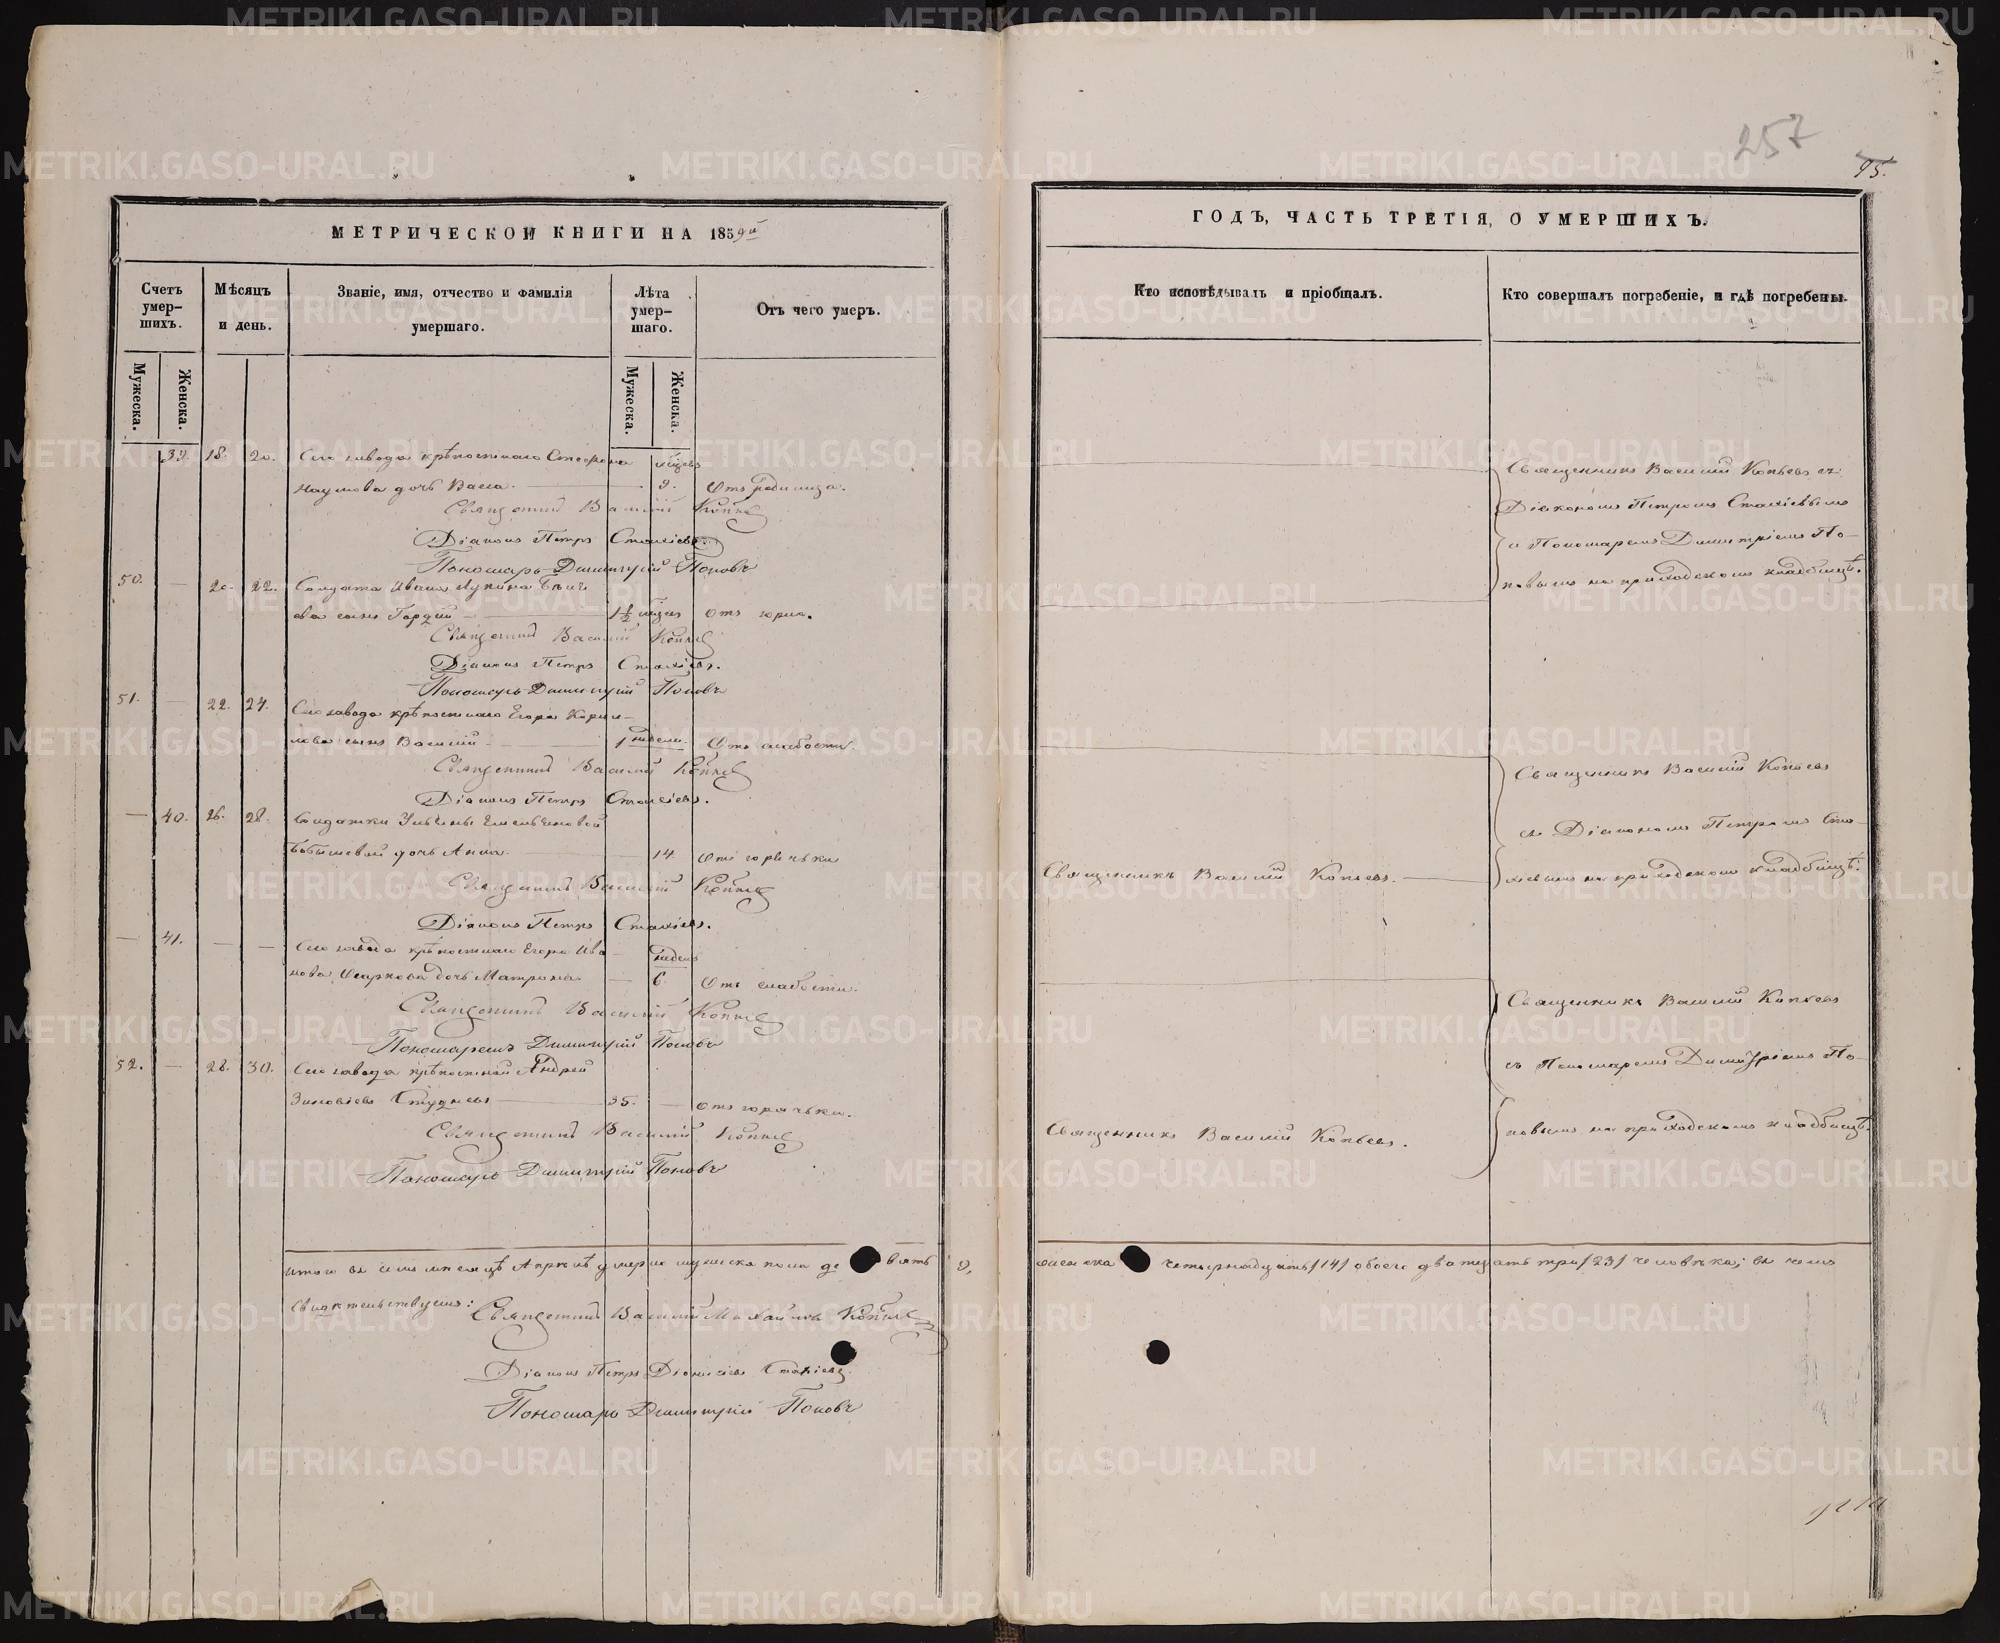 257
95.
МЕТРИЧЕСКОЙ КНИГИ НА 1859й
ГОДЪ, ЧАСТЬ ТРЕТІЯ, О УМЕРШИХЪ.
Счетъ умер-шихъ.
Мѣсяцъ и день.
Званіе, имя, отчество и фамилія умершаго.
Лѣта умер-шаго.
Отъ чего умеръ.
Кто исповѣдывалъ и пріобщалъ.
Кто совершалъ погребеніе, и гдѣ погребены.
Мужеска.
Женска.
Мужеска.
Женска.
39. 18. 20. Сего завода крѣпостнаго Стефана мѣсяц
Наумова дочь Васса. 9. Отъ родимца.
Священникъ Василій Копьев
Діаконъ Петръ Стахіевъ.
Пономарь Димитрій Поповъ
50. — 20. 22. Солдата Ивана Лукина
ва сынъ Гордій 1½ мѣсяц Отъ
Священникъ Василій Копьев
Діаконъ Петръ Стахіевъ.
Пономарь Димитрій Поповъ
Священникъ Василій Копьевъ съ
Діакономъ Петромъ Стахіевымъ
и Пономаремъ Димитріемъ По-
повымъ на приходскомъ кладбищѣ.
51. — 22. 24. Сего завода крѣпостнаго Егора Корни-
лова сынъ Василій 1 недели Отъ слабости.
Священникъ Василій Копьев
Діаконъ Петръ Стахіевъ.
— 40. 26. 28. Солдатки Ульяны Емельяновой
дочь Анна. 14. Отъ горячьки
Священникъ Василій Копьев
Діаконъ Петръ Стахіевъ.
Священникъ Василій Копьевъ.
Священникъ Василій Копьевъ
съ Діакономъ Петромъ Ста-
хіевымъ на приходскомъ кладбищѣ.
— 41. — — Сего завода крѣпостнаго Егора Ива недель
нова дочь Матрона. 6. Отъ слабости.
Священникъ Василій Копьев
Пономаремъ Димитрій Поповъ
52. — 28. 30. Сего завода крѣпостной Андрей
Зиновіевъ 35. — Отъ горячьки.
Священникъ Василій Копьев
Пономарь Димитрій Поповъ
Священникъ Василій Копьевъ.
Священникъ Василій Копьевъ
съ Пономаремъ Димитріемъ По-
повымъ на приходскомъ кладбищѣ.
Итого въ семъ мѣсяцѣ Апрѣлѣ умерло мужеска пола девять 9,
женска четырнадцать /14/ обоего двадцать три /23/ человѣка; въ чемъ
свидѣтельствуемъ: Священникъ Василій Михайловъ Копьев
Діаконъ Петръ Діонисіевъ Стахіевъ.
Пономарь Димитрій Поповъ
METRIKI.GASO-URAL.RU